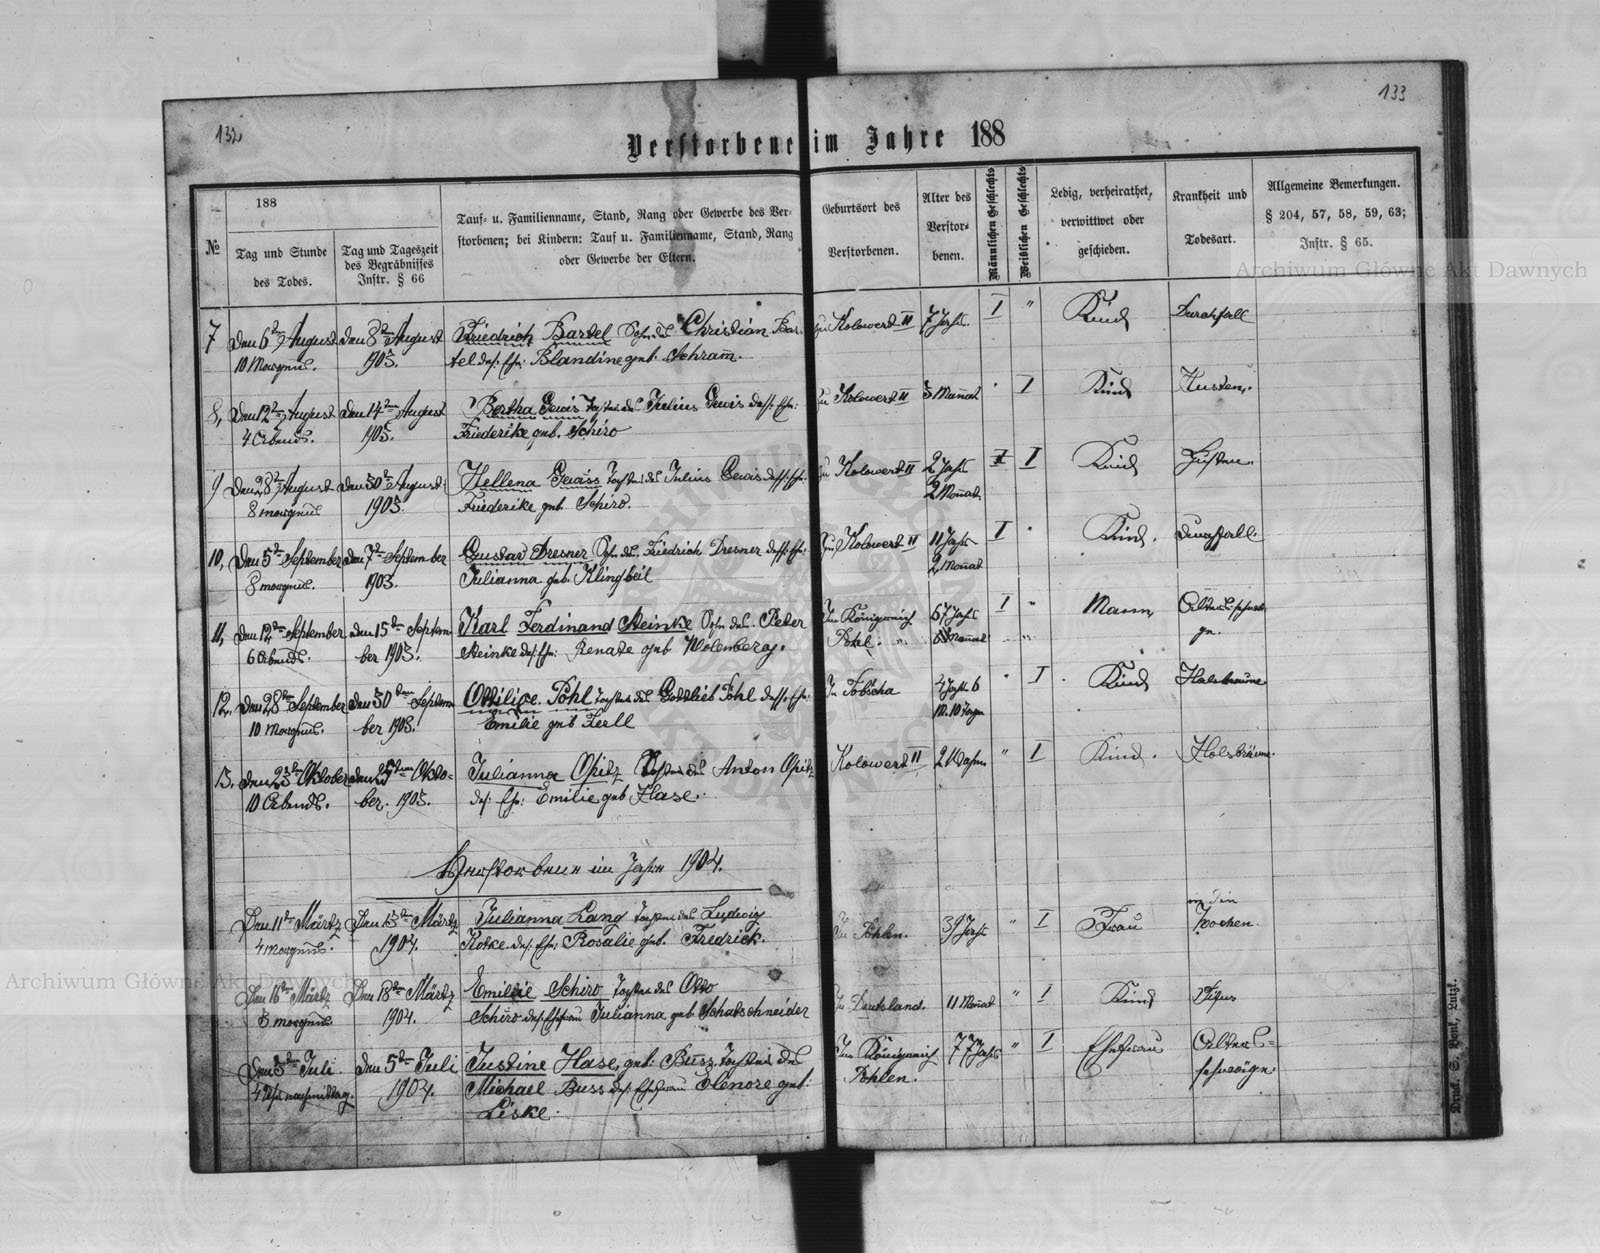 132
133
Verstorbene im Jahre 188
№
188
Tag und Stunde
des Todes.
Tag und Tageszeit
des Begräbnisses
Instr. § 66
Tauf- u. Familienname, Stand, Rang oder Gewerbe des Ver-
storbenen; bei Kindern: Tauf u. Familienname, Stand, Rang
oder Gewerbe der Eltern.
Geburtsort des
Verstorbenen.
Alter des
Verstor-
benen.
Männlichen Geschlechts
Weiblichen Geschlechts
Ledig, verheirathet,
verwittwet oder
geschieden.
Krankheit und
Todesart.
Allgemeine Bemerkungen.
§ 204, 57, 58, 59, 63;
Instr. § 65.
7 Den 6ten August den 8ten August Friedrich Bartel Sohn des Christian Bar- zu Kolowert II 7 Jahr I " Kind Durchfall
10 Morgens. 1903. tel des: Ehe: Blandine geb. Schram.
8, Den 12ten August den 14ten August Bertha Gewis Tochter des Julius Gewis dess: Ehe: zu Kolowert II 3 Monat " I Kind Husten.
4 Abends. 1903. Friederike geb. Schiro
9 Den 28ten August den 30ten August Hellena Gewiss Tochter des Julius Gewis dess: Ehe: zu Kolowert II 2 Jahr I Kind Husten
8 morgens 1903. Friederike geb. Schiro. 2 Monat
10, Den 5ten September den 7ten September Gustav Dresner Sohn des Friedrich Dresner dess: Ehe: zu Kolowert II 11 Jahr I " Kind. Durchfall.
8 morgens. 1903. Julianna geb. Klingbeil 2 Monat
11, Den 12ten September den 15ten Septem Karl Ferdinand Steinke Sohn des Peter Im Königreich 67 Jahr I " Mann Altersschwä
6 Abends. ber 1903. Steinke des: Ehe: Renate geb Wolenberg. Pohl. Monat
12, Den 28ten September den 30ten Septem Ottilie Pohl Tochter des Gottlieb Pohl dess: Ehe: In 4 Jahr 6 " I Kind Halsbräune
10 Morgens. ber 1903. Emilie geb Zerll M. 10 Tagen
13, den 23ten Oktober den 25ten Okto- Julianna Opitz Tochter des Anton Opitz Kolowert II 2 Wochen " I Kind. Halsbräune.
10 Abends. ber. 1903. des: Ehe: Emilie geb Hase.
Verstorbene im Jahre 1904.
Den 11ten Märtz Den 13ten Märtz Julianna Lang Tochter des Ludwig In Pohlen. 39 Jahr " I Frau in den Wochen.
4 morgens. 1904. Kotke. des: Ehe: Rosalie geb. Fredrick.
Den 16ten Märtz Den 18ten Märtz Emilie Schiro Tochter des Otto In Deutsland. 11 Monat " I Kind
8 morgens. 1904. Schiro des: Ehefrau Julianna geb. Schatschneider
Den 3ten Juli. Den 5ten Juli Justine Hase, geb: Buss, Tochter des Im Königreich 77 Jahr " I Ehefrau Alters-
4 Uhr nachmittag. 1904. Michael Buss des: Ehefrau Elenore geb: Pohlen. schwäche
Liske.
Druk. S. Bonk, Lutzk.
Archiwum Główne Akt Dawnych
Archiwum Główne Akt Dawnych